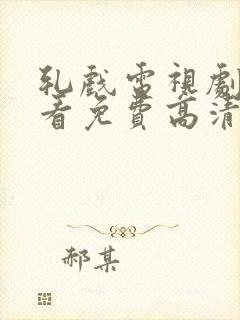 乳戲電視劇
看免費高清
郝某